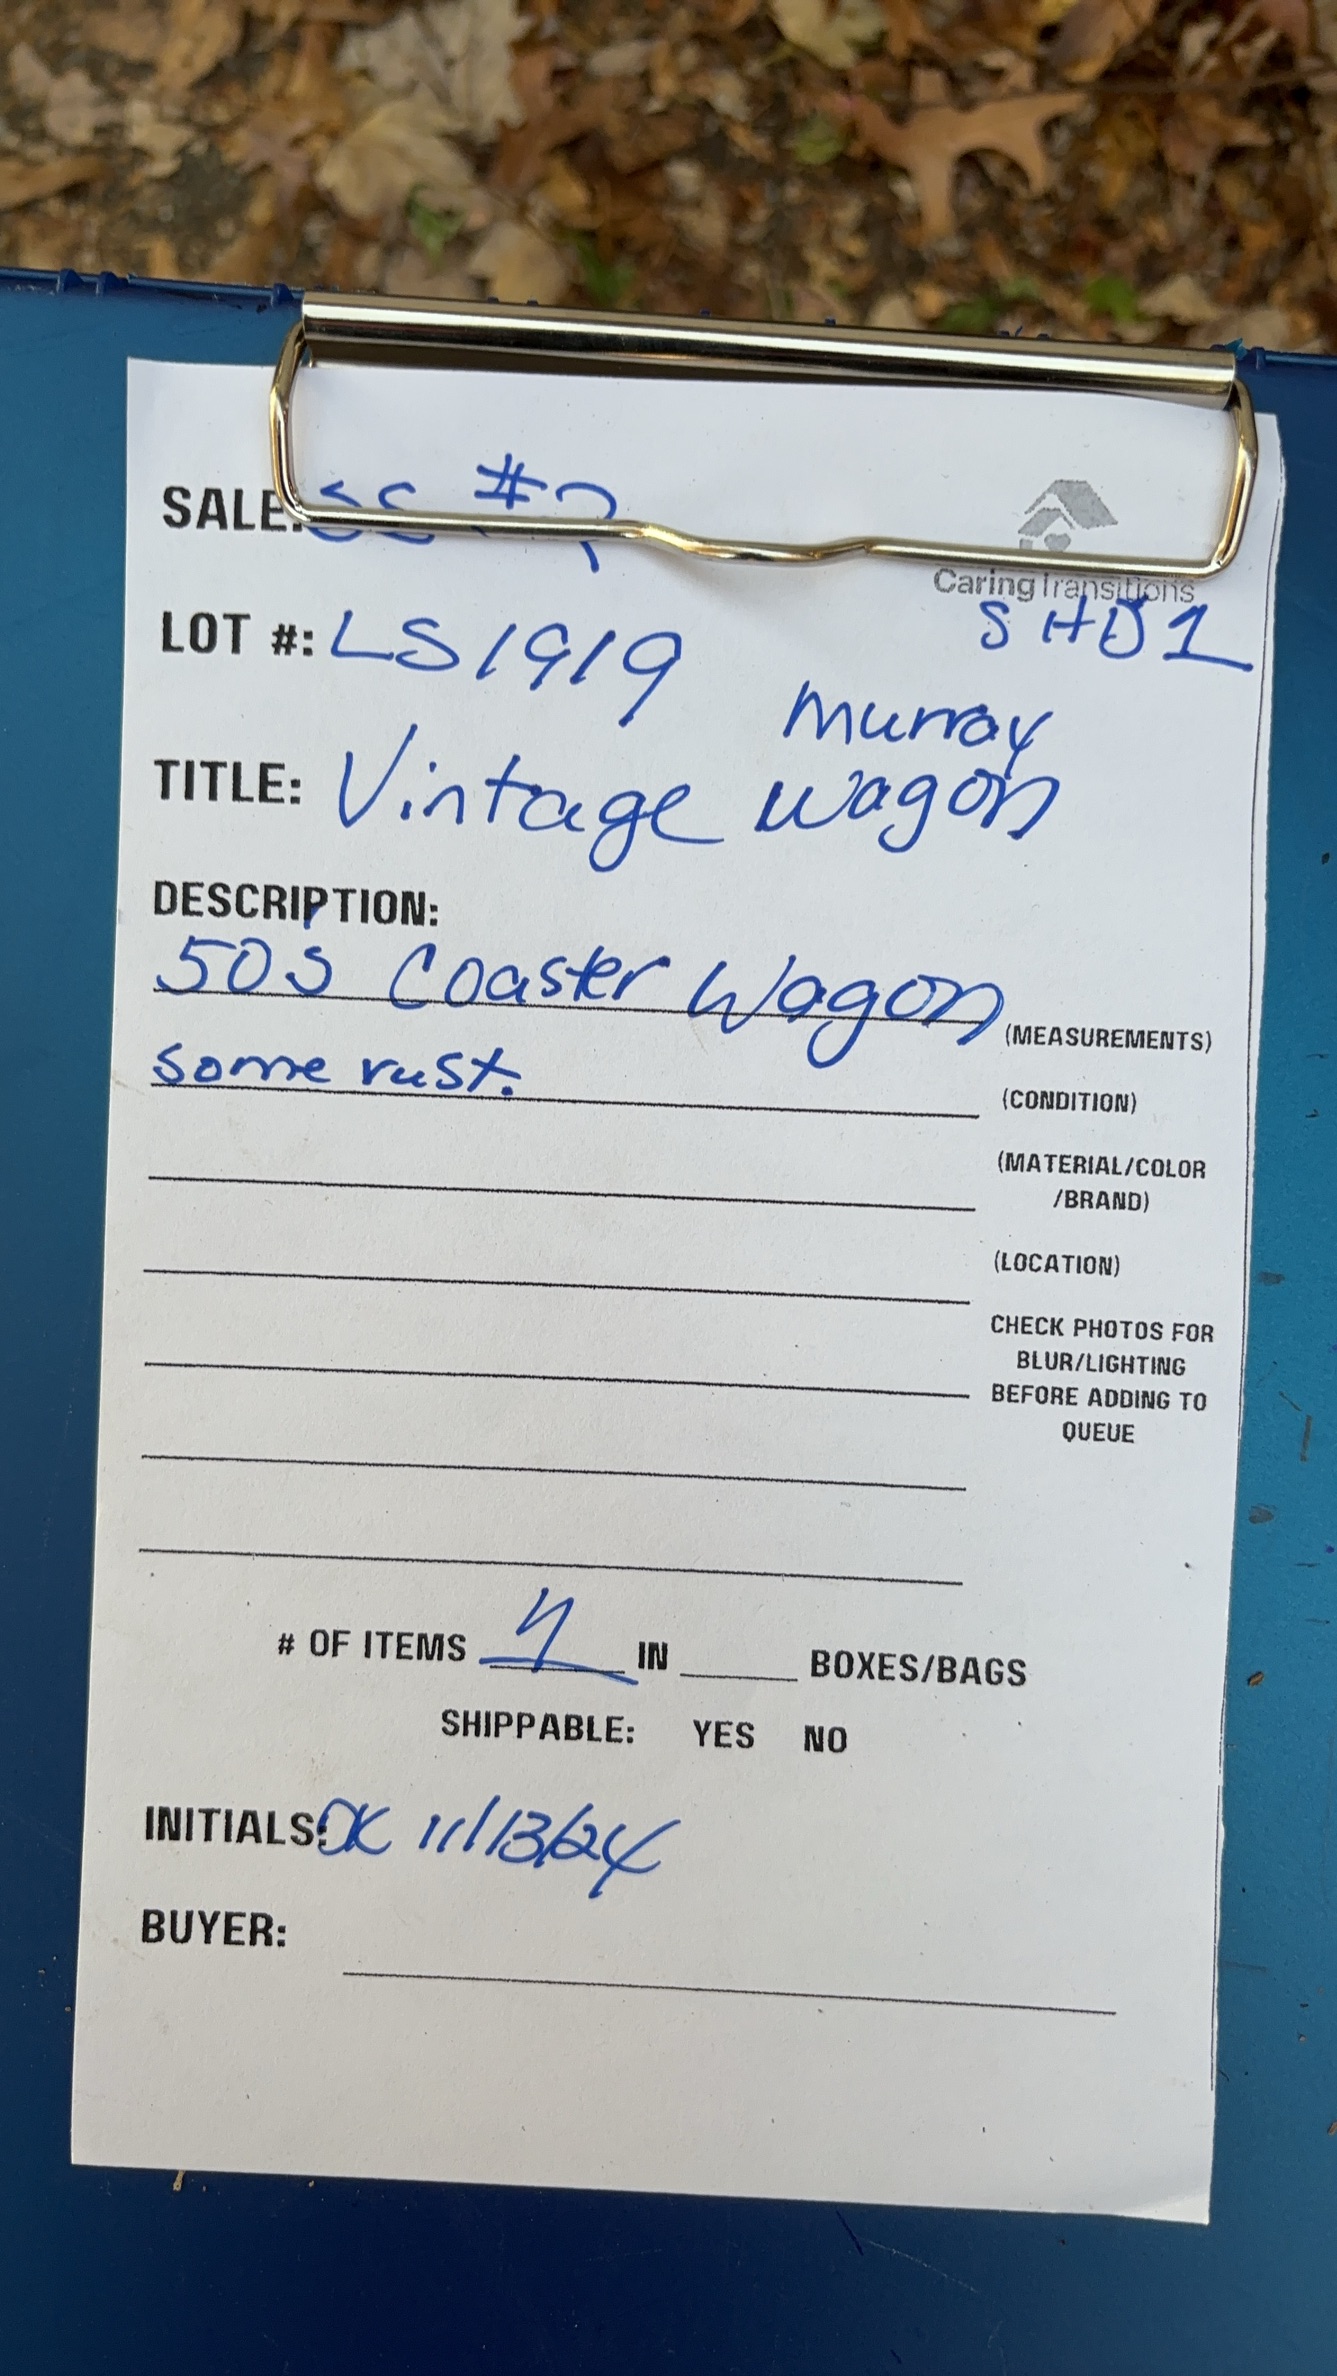 SALE: SS #7
CaringTransitions
SHD1
LOT #: LS1919
murray
TITLE: Vintage wagon
DESCRIPTION:
50s Coaster Wagon (MEASUREMENTS)
some rust. (CONDITION)
(MATERIAL/COLOR
/BRAND)
(LOCATION)
CHECK PHOTOS FOR
BLUR/LIGHTING
BEFORE ADDING TO
QUEUE
# OF ITEMS IN BOXES/BAGS
SHIPPABLE: YES NO
INITIALS: 11/13/24
BUYER: